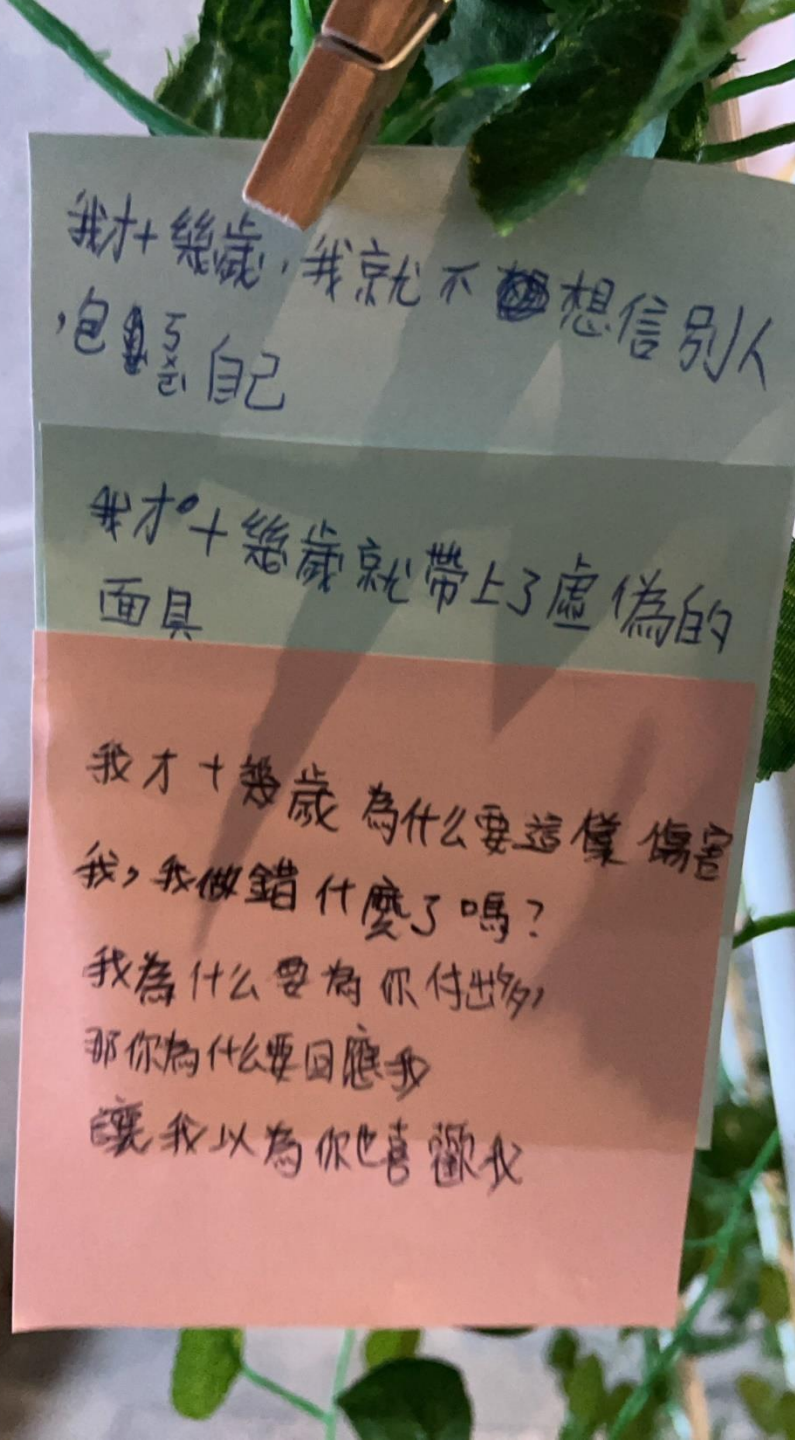 我才十幾歲，我就不想信別人
，包ㄎㄨㄛ自己
我才十幾歲就帶上了虛偽的
面具
我才十幾歲 為什么要這樣 傷害
我，我做錯什麼了嗎？
我為什么要為你付出多，
那你為什么要回應我
讓我以為你也喜歡我